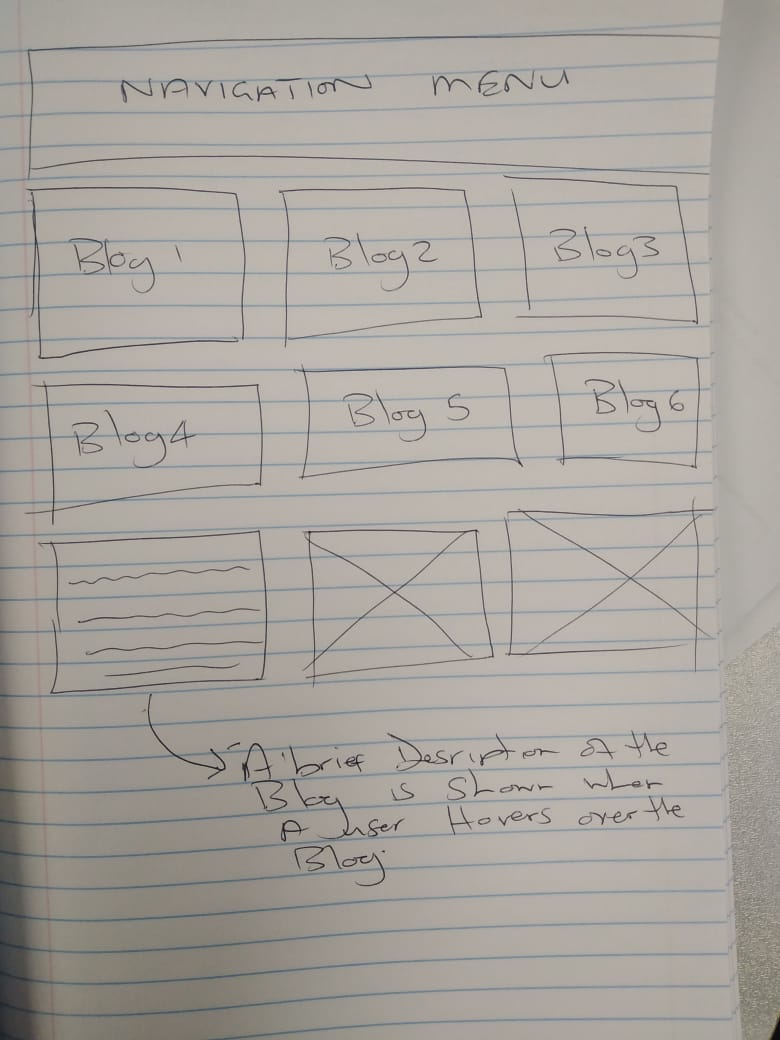 NAVIGATION MENU
Blog 1
Blog2
Blog3
Blog4
Blog 5
Blog 6
A brief Desription of the
Blog is shown when
A user Hovers over the
Blog.